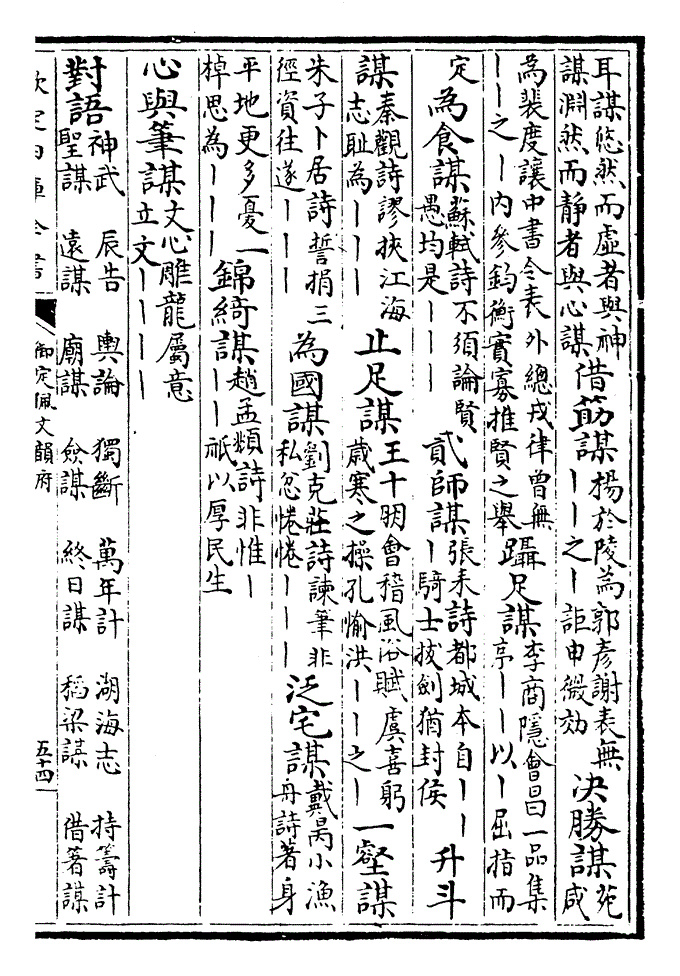 耳謀悠然而虛者與神謀淵然而静者與心謀借筯謀楊於陵為郭彦謝表無丨丨之丨詎申微効决勝謀苑咸
為裴度讓中書令表外總戎律曾無丨丨之丨内參鈞衡實寡推賢之舉躡足謀李商隱會昌一品集序丨丨以丨屈指而
定為食謀蘇軾詩不須論賢愚均是丨丨丨貳師謀張耒詩都城本自丨丨丨騎士拔劍猶封侯升斗
謀秦觀詩謬挾江海志耻為丨丨丨止足謀王十朋會稽風俗賦虞喜躬歲寒之操孔愉洪丨丨之丨一壑謀
朱子卜居詩誓捐三徑資往遂丨丨丨為國謀劉克莊詩諫筆非私忽惓惓丨丨丨泛宅謀戴昺小漁舟詩著身
平地更多憂一棹思為丨丨丨錦綺謀趙孟頫詩非惟丨丨丨祇以厚民生
心與筆謀文心雕龍屬意立文丨丨丨丨
對語神武聖謀 辰告遠謀 輿論廟謀 獨斷僉謀 萬年計終日謀 湖海志稻粱謀 持籌計借箸謀
欽定四庫全書 御定佩文韻府 五十四